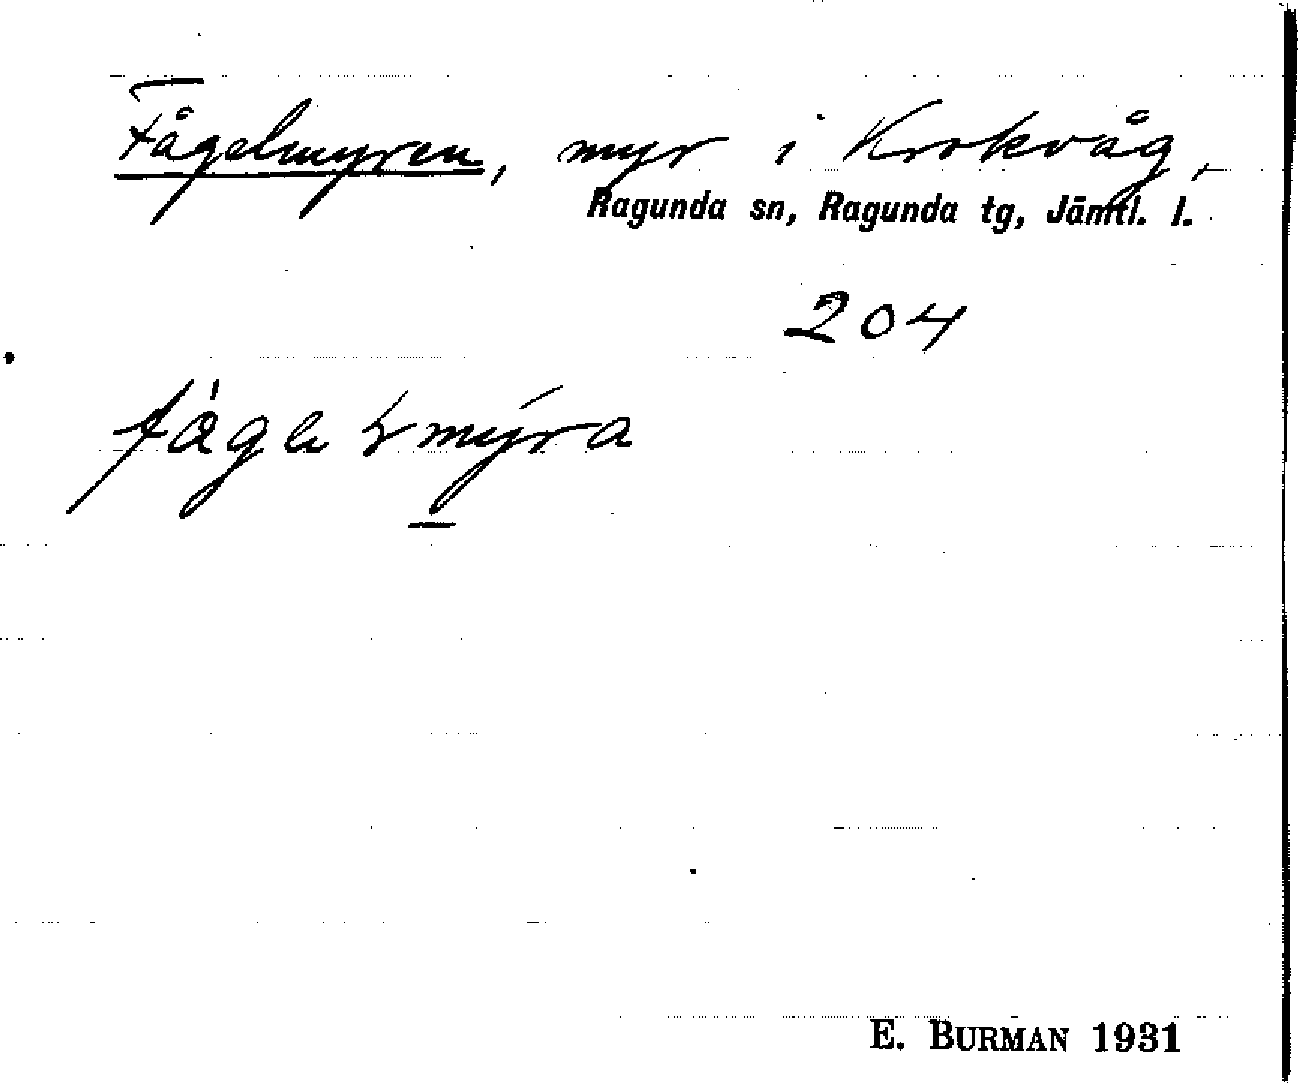 Fågelmyren, myr i Krokvåg,
Ragunda sn, Ragunda tg, Jämtl. l.
204
E. BURMAN 1931